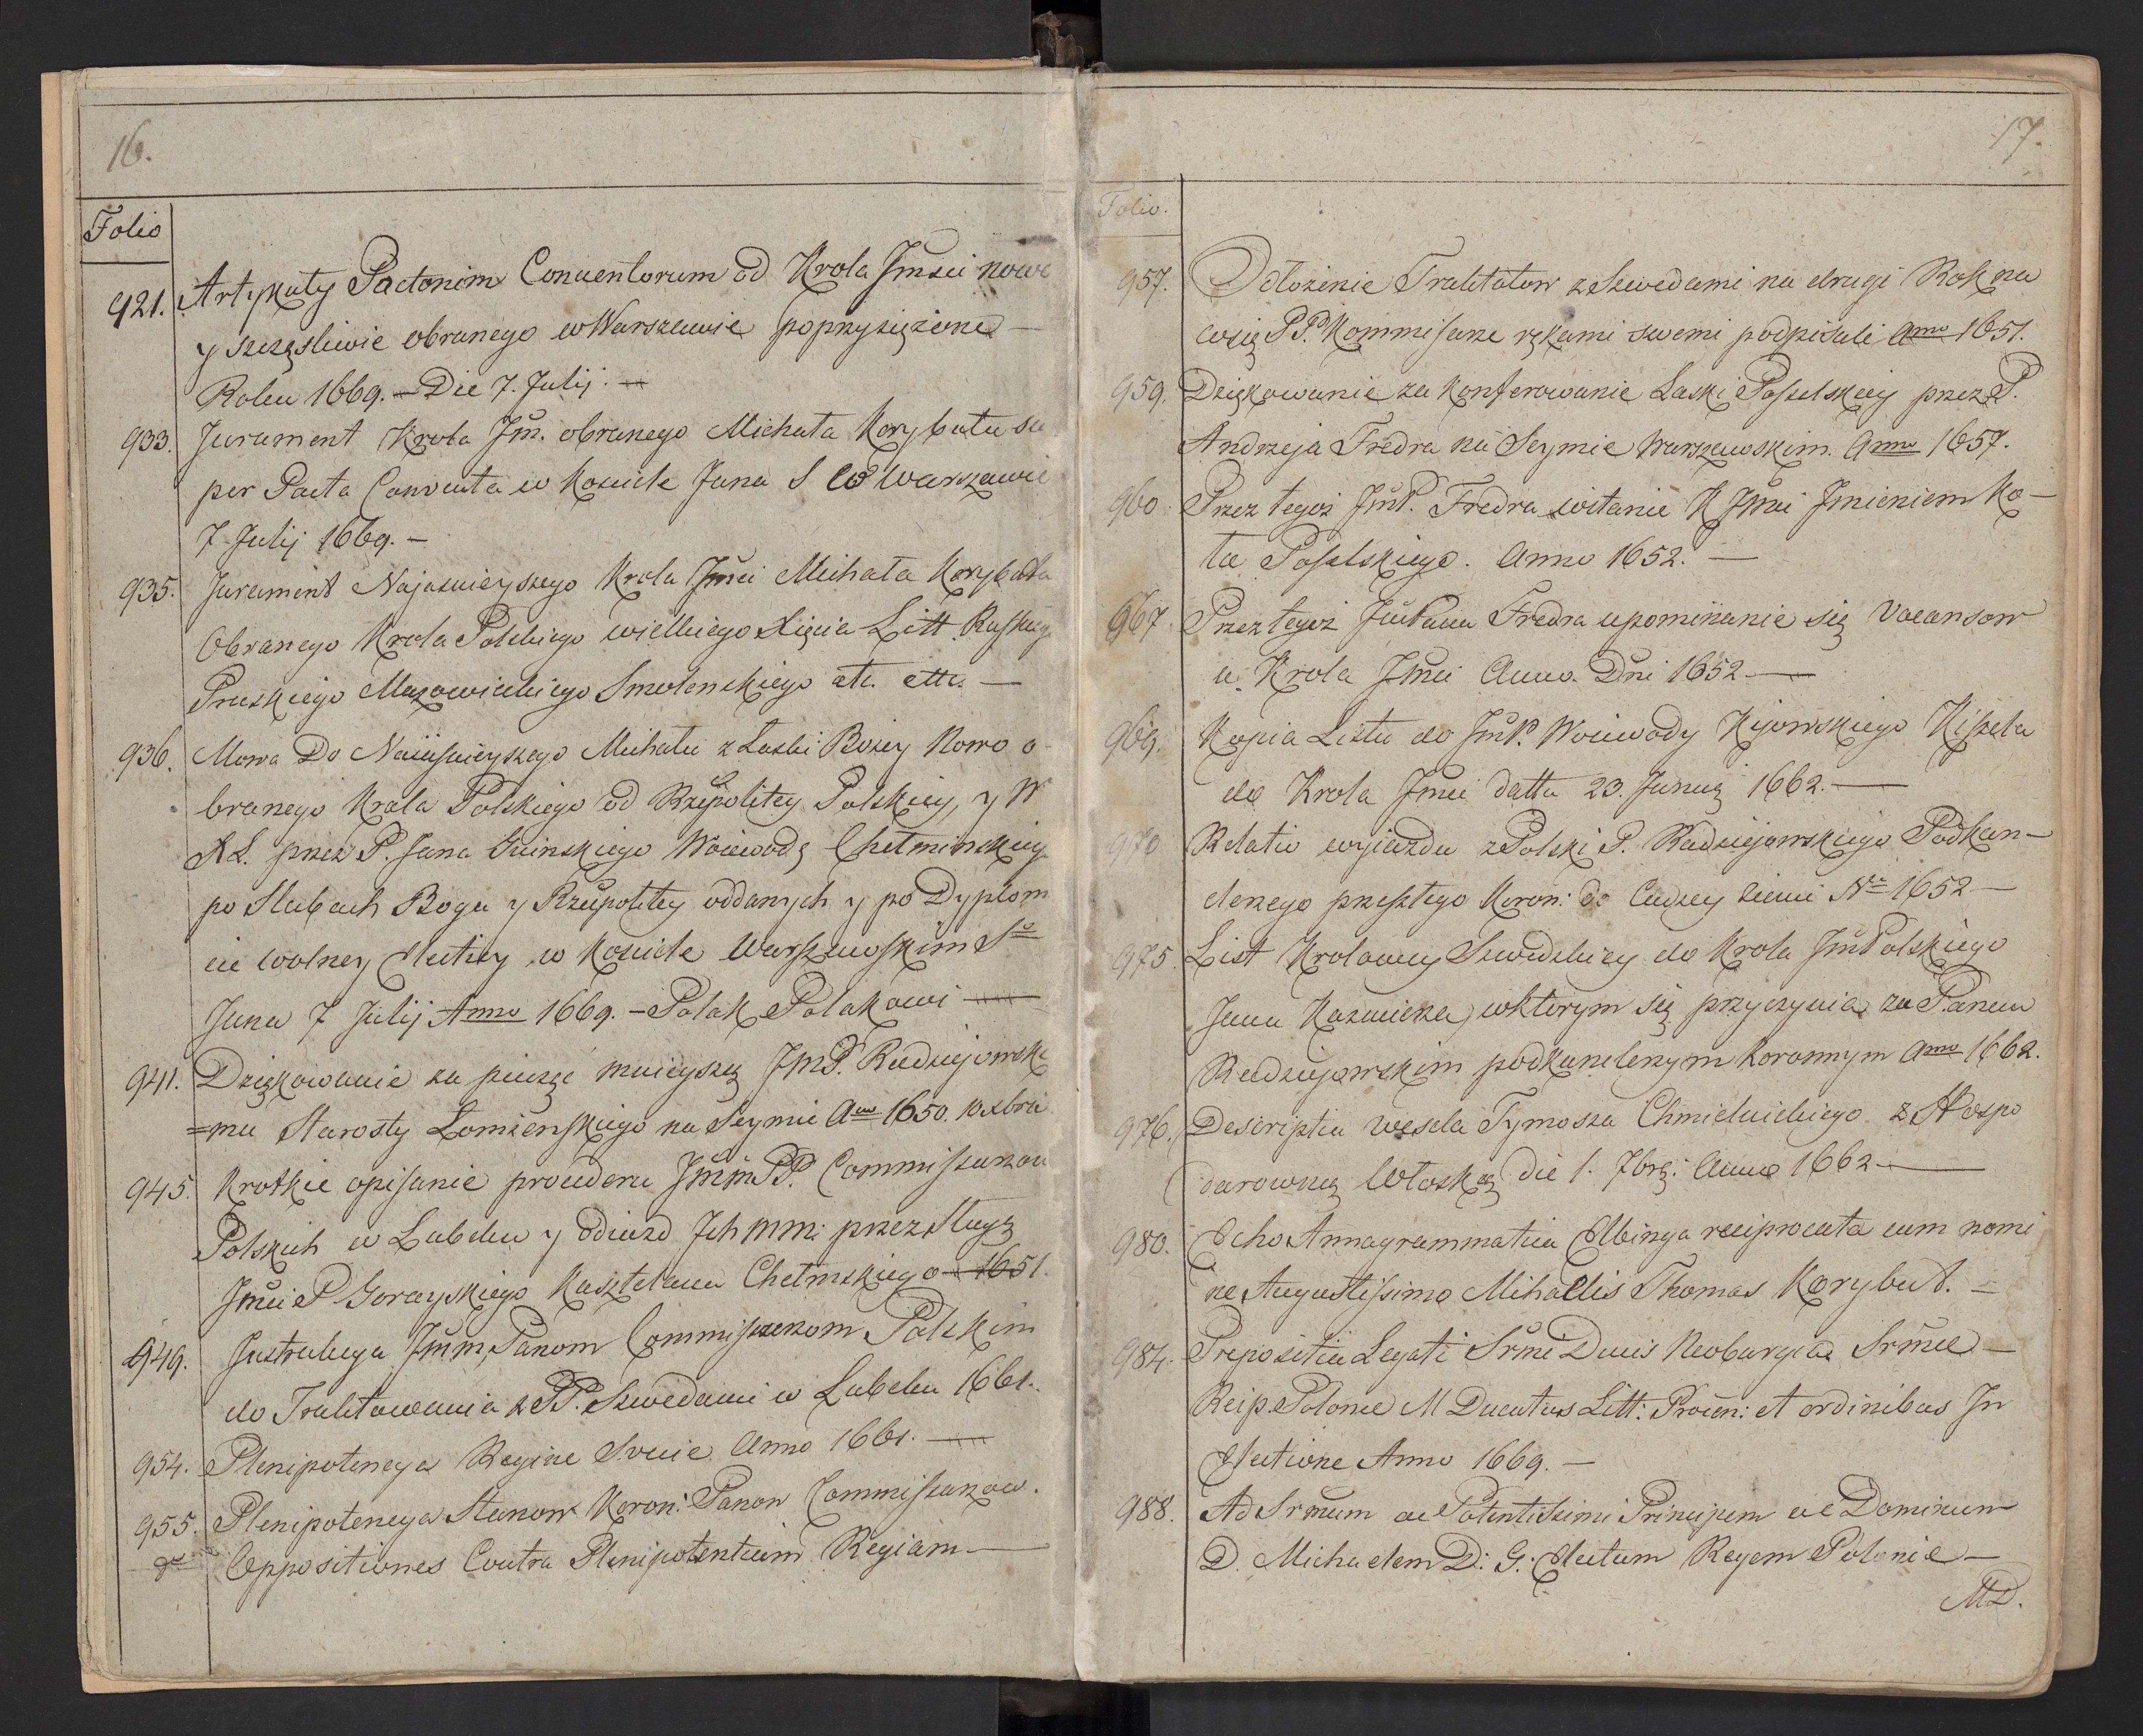 16.
Folio
921. Artykuły Pactorum Conventorum od Krola Jmsci nowo
y szczęsliwie obranego w Warszawie poprzysiężone —
Roku 1669. — Die 7. Julij. —
933. Jurament Krola Jm. obranego Michała Korybuta su
per Pacta Conventa w Kosciele Jana S w Warszawie
7 Julij 1669. —
935. Jurament Najasnieyszego Krola Jmci Michała Korybutta
Obranego Krola Polskiego wielkiego Xięcia Litt. Ruskiego
Pruskiego Mazowieckiego Smolenskiego etc. ettc. —
936. Mowa Do Naiiasnieyszego Michała z Łaski Bozey Nowo o-
branego Krola Polskiego od Rzepolitey Polskiey, y W
X L. przez P. Jana Gninskiego Woiewodę Chełminskieg
po Slubach Bogu y Rzeupolitey oddanych y po Dyplom
cie wolney Elekcyi w Kosciele Warszawskim S°
Jana 7 Julij Anno 1669. — Polak Polakowi —
941. Dziękowanie za pieczęć mnieyszą JmP. Radziejowski
=mu Starosty Łomżenskiego na Seymie Ano 1650. 10 xbris
945. Krotkie opisanie procederu JmmPP. Commissarzow
Polskich w Lubeku y odiazd Jch mm: przez Sługę
Jmci P Gorayskiego Kasztelana Chełmskiego 1651.
949. Jnstrukcya Jmm Panom Commissarzom Polskim
do Traktowania z PP. Szwedami w Lubeku 1661.
954. Plenipotencya Regine Svecie Anno 1661. —
955. Plenipotencya Stanow Koron: Panow Commissarzow.
Oppositiones Contra Plenipotentiam Regiam —
17.
Folio.
957. Odłożenie Traktatow z Szwedami na drugi Rok na
co się PP. Kommisarze rękami swemi podpisali Ano 1651.
959. Dziękowanie za Konferowanie Laski Poselskiey przez P.
Andrzeja Fredra na Seymie Warszawskim. Anno 1657.
960 Przez tegoż JmP. Fredra witanie K Jmci Jmieniem Ko-
ła Poselskiego. Anno 1652. —
967. Przez tegoż Jm Pana Fredra upominanie się Vacansow
u Krola Jmci Anno Dni 1652 —
969. Kopia Listu do JmP. Woiewody Kijowskiego Kisiela
do Krola Jmci datta 23. Junii 1662. —
970 Relatio wyiazdu z Polski P. Radziejowskiego Podkan-
clerzego przeszłego Koron: do Cudzey ziemi A° 1652 —
975. List Krolowey Szwedzkiey do Krola Jm Polskiego
Jana Kazimierza, w ktorym się przyczynia za Panem
Radziejowskim podkanclerzym Koronnym Ano 1662.
976. Descriptia Wesela Tymosza Chmielnickiego z Hospo
darowną Wołoską die 1. 7brę: Anno 1662 —
980. Echo Annagrammatica Elbinga reciprocata cum nomi
ne Augustissimo Mihaelis Thomas Korybut. =
984. Prepositia Legati Srmi Ducis Neoburgi ad Srmae —
Reip. Polone M Ducatus Litt: Provin: et ordinibus Jn
Electione Anno 1669. —
988. Ad Srmum ac Potentissimi Principem ac Dominum
D. Michaelem D: G: Electum Regem Polonie —
MD.